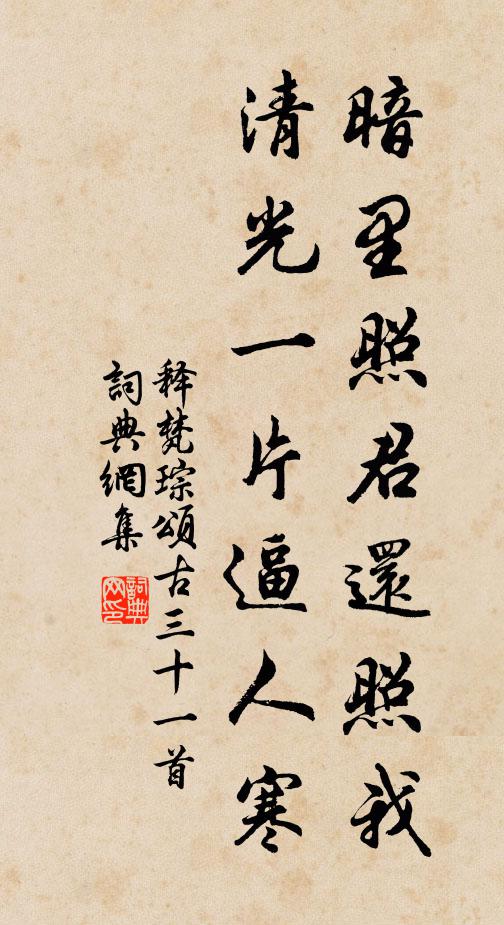 暗里照君還照我
清光一片逼人寒
释梵琮頌古三十一首
詞典網集
詞典網印